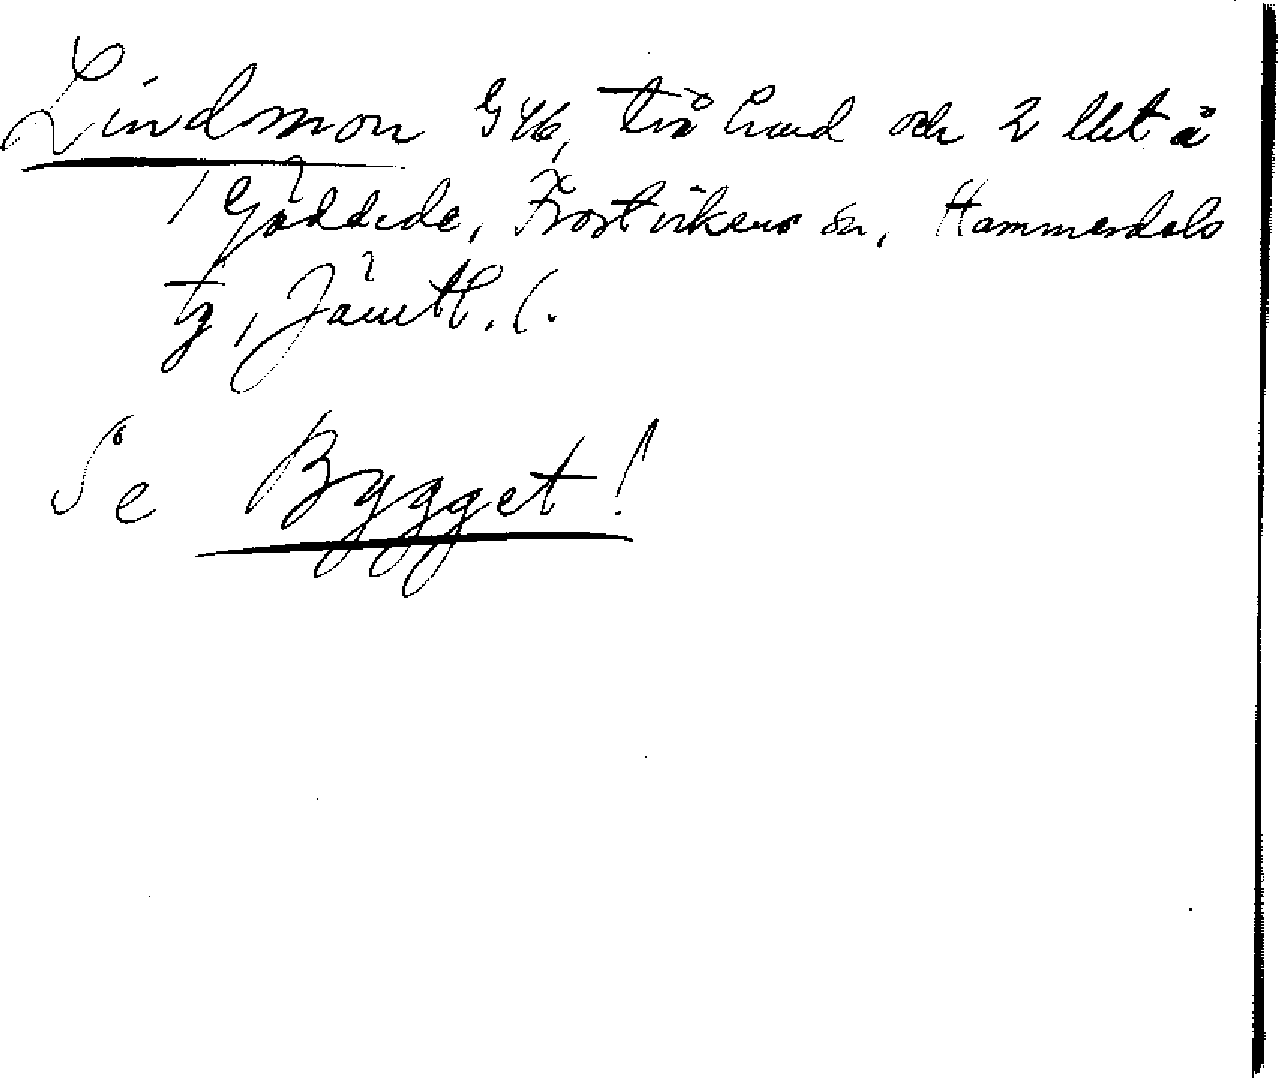 Lindmon G46, två hus och 2 llt å
Gäddede, Frostvikens sn, Hammerdals
tg, Jämtl. l.
Se Bygget!